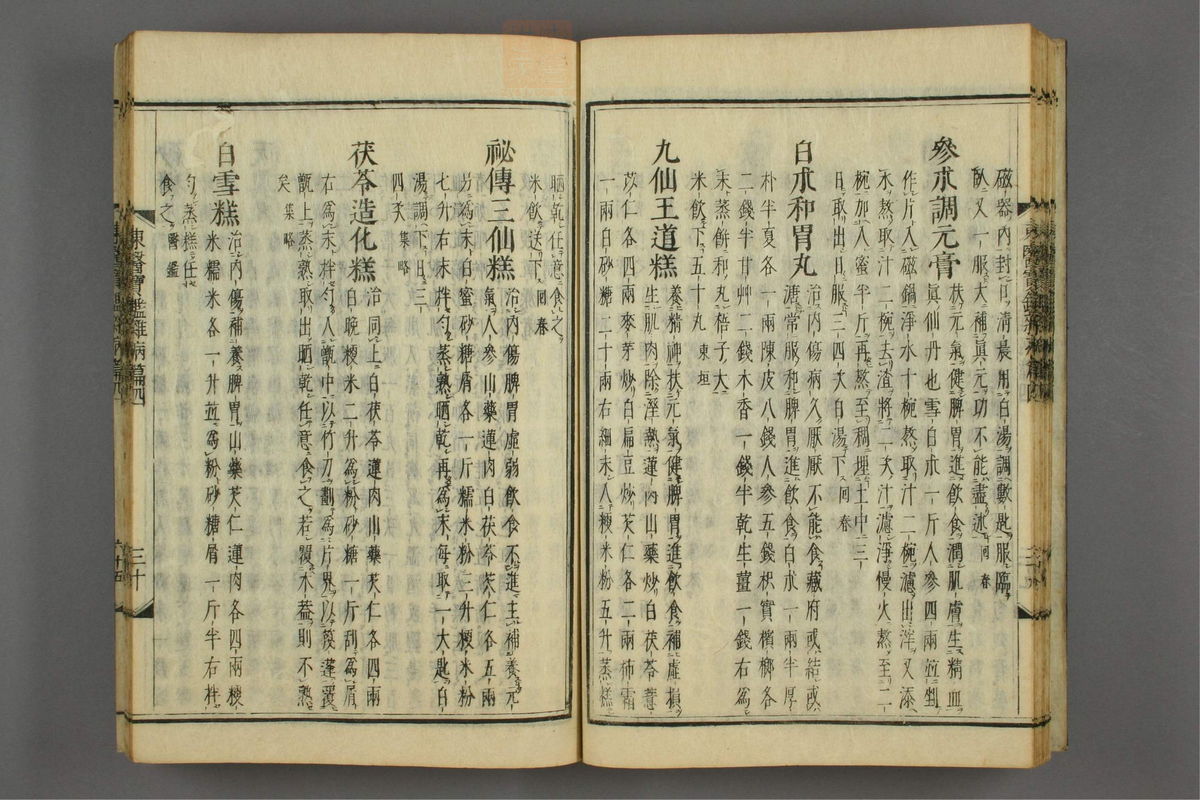 磁器內封口清晨用白湯調數匙服臨
臥又一服大補眞元功不能盡述回春
參朮調元膏
扶元氣健脾胃進飮食潤肌膚生精血
眞仙丹也雪白朮一斤人參四兩並剉
作片入磁鍋淨水十椀熬取汁二椀濾出滓又添
水熬取汁二椀去渣將二次汁濾淨慢火熬至二
椀加入蜜半斤再熬至稠埋土中三
日取出每日服三四次白湯下回春
白朮和胃丸
治內傷病久厭厭不能食藏府或結或
溏常服和脾胃進飮食白朮一兩半厚
朴半夏各一兩陳皮八錢人參五錢枳實檳榔各
二錢半甘艸二錢木香一錢半乾生薑一錢右爲
末蒸餠和丸梧子大
米飮下五十丸東垣
九仙王道糕
養精神扶元氣健脾胃進飮食補虛損
生肌肉除溼熱蓮肉山藥炒白茯苓薏
苡仁各四兩麥芽炒白扁豆炒芡仁各二兩柿霜
一兩白砂糖二十兩右細末入粳米粉五升蒸糕
晒乾任意食之
米飮送下回春
祕傳三仙糕
治內傷脾胃虛弱飮食不進主補養元
氣人參山藥蓮肉白茯苓芡仁各五兩
另爲末白蜜砂糖屑各一斤糯米粉三升粳米粉
七升右末拌勻蒸熟晒乾再爲末每取一大匙白
湯調下日三
四次集略
茯苓造化糕
治同上白茯苓蓮肉山藥芡仁各四兩
白晚粳米二升爲粉砂糖一斤刮爲屑
右爲末拌勻入甑中以竹刀劃爲片界以篾蓬覆
甑上蒸熟取出晒乾任意食之若覆木蓋則不熟
矣集略
白雪糕
治內傷補養脾胃山藥芡仁蓮肉各四兩粳
米糯米各一升並爲粉砂糖屑一斤半右拌
勻蒸糕任
食之醫鑑
東醫寶鑑雜病篇四
三十